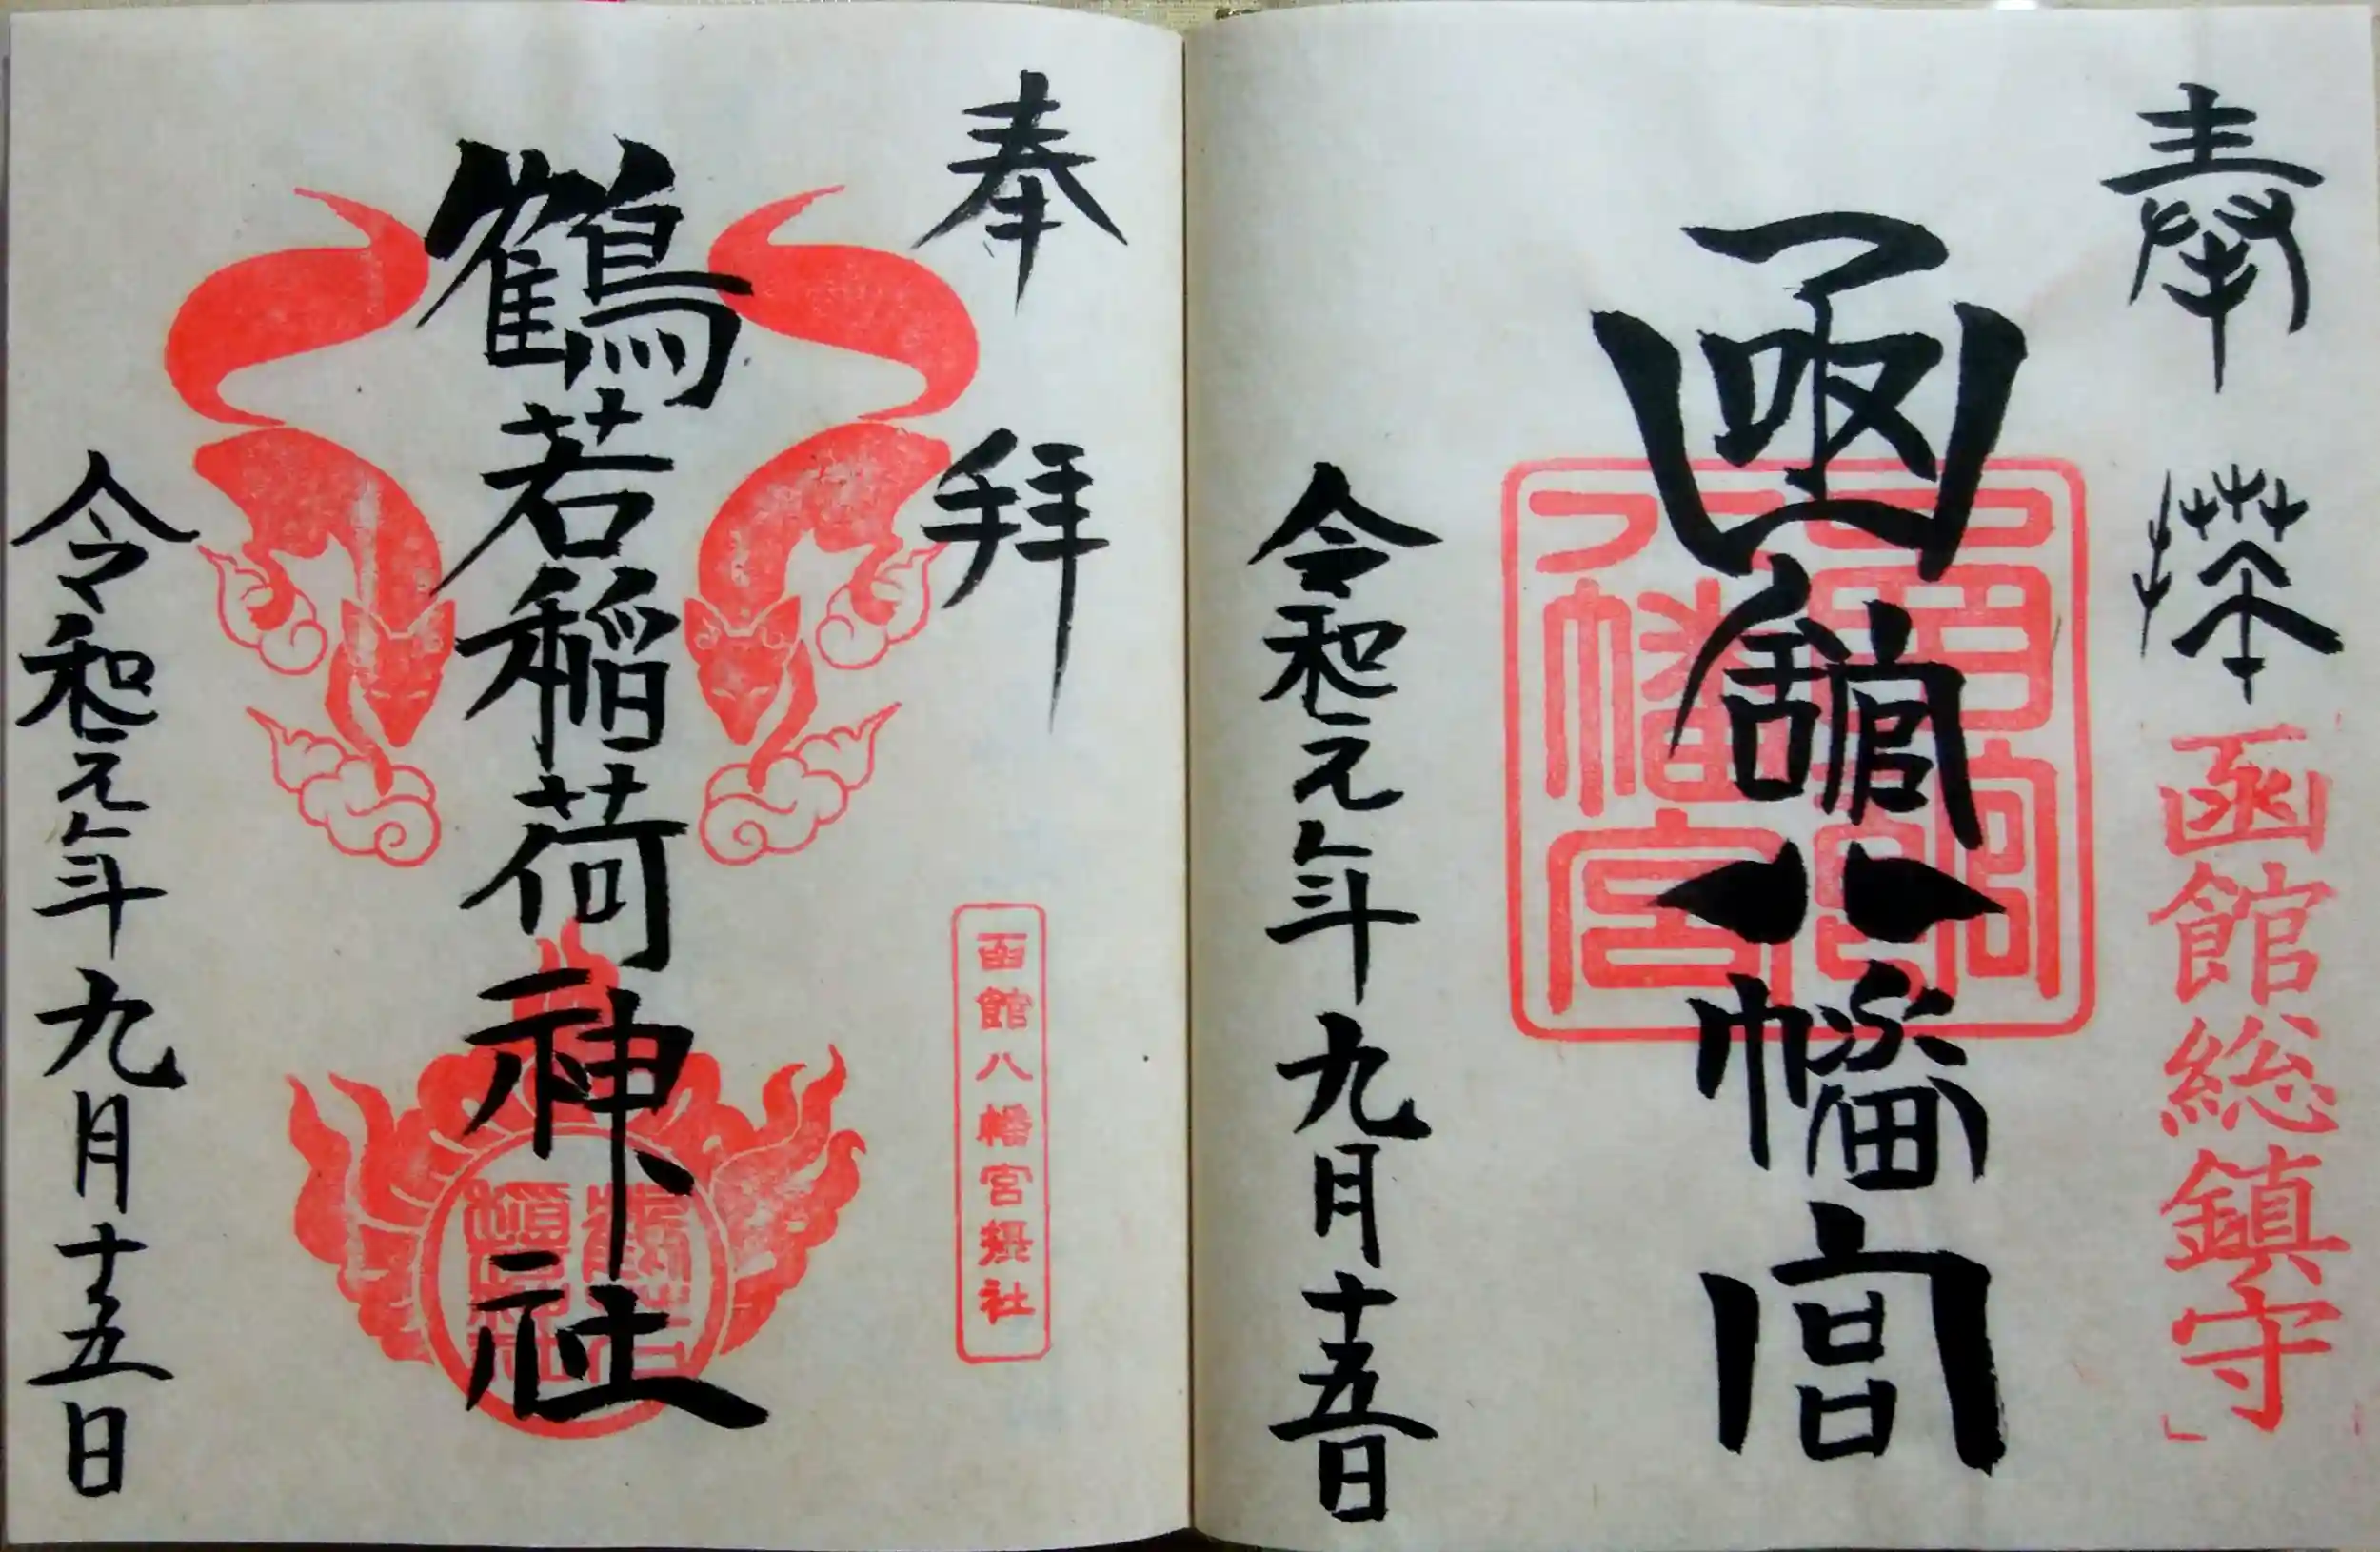 奉拝
函館総鎮守
函館八幡宮
函館八幡宮
令和元年九月十五日
奉拝
函館八幡宮摂社
鶴若稲荷神社
鶴若稲荷神社
令和元年九月十五日